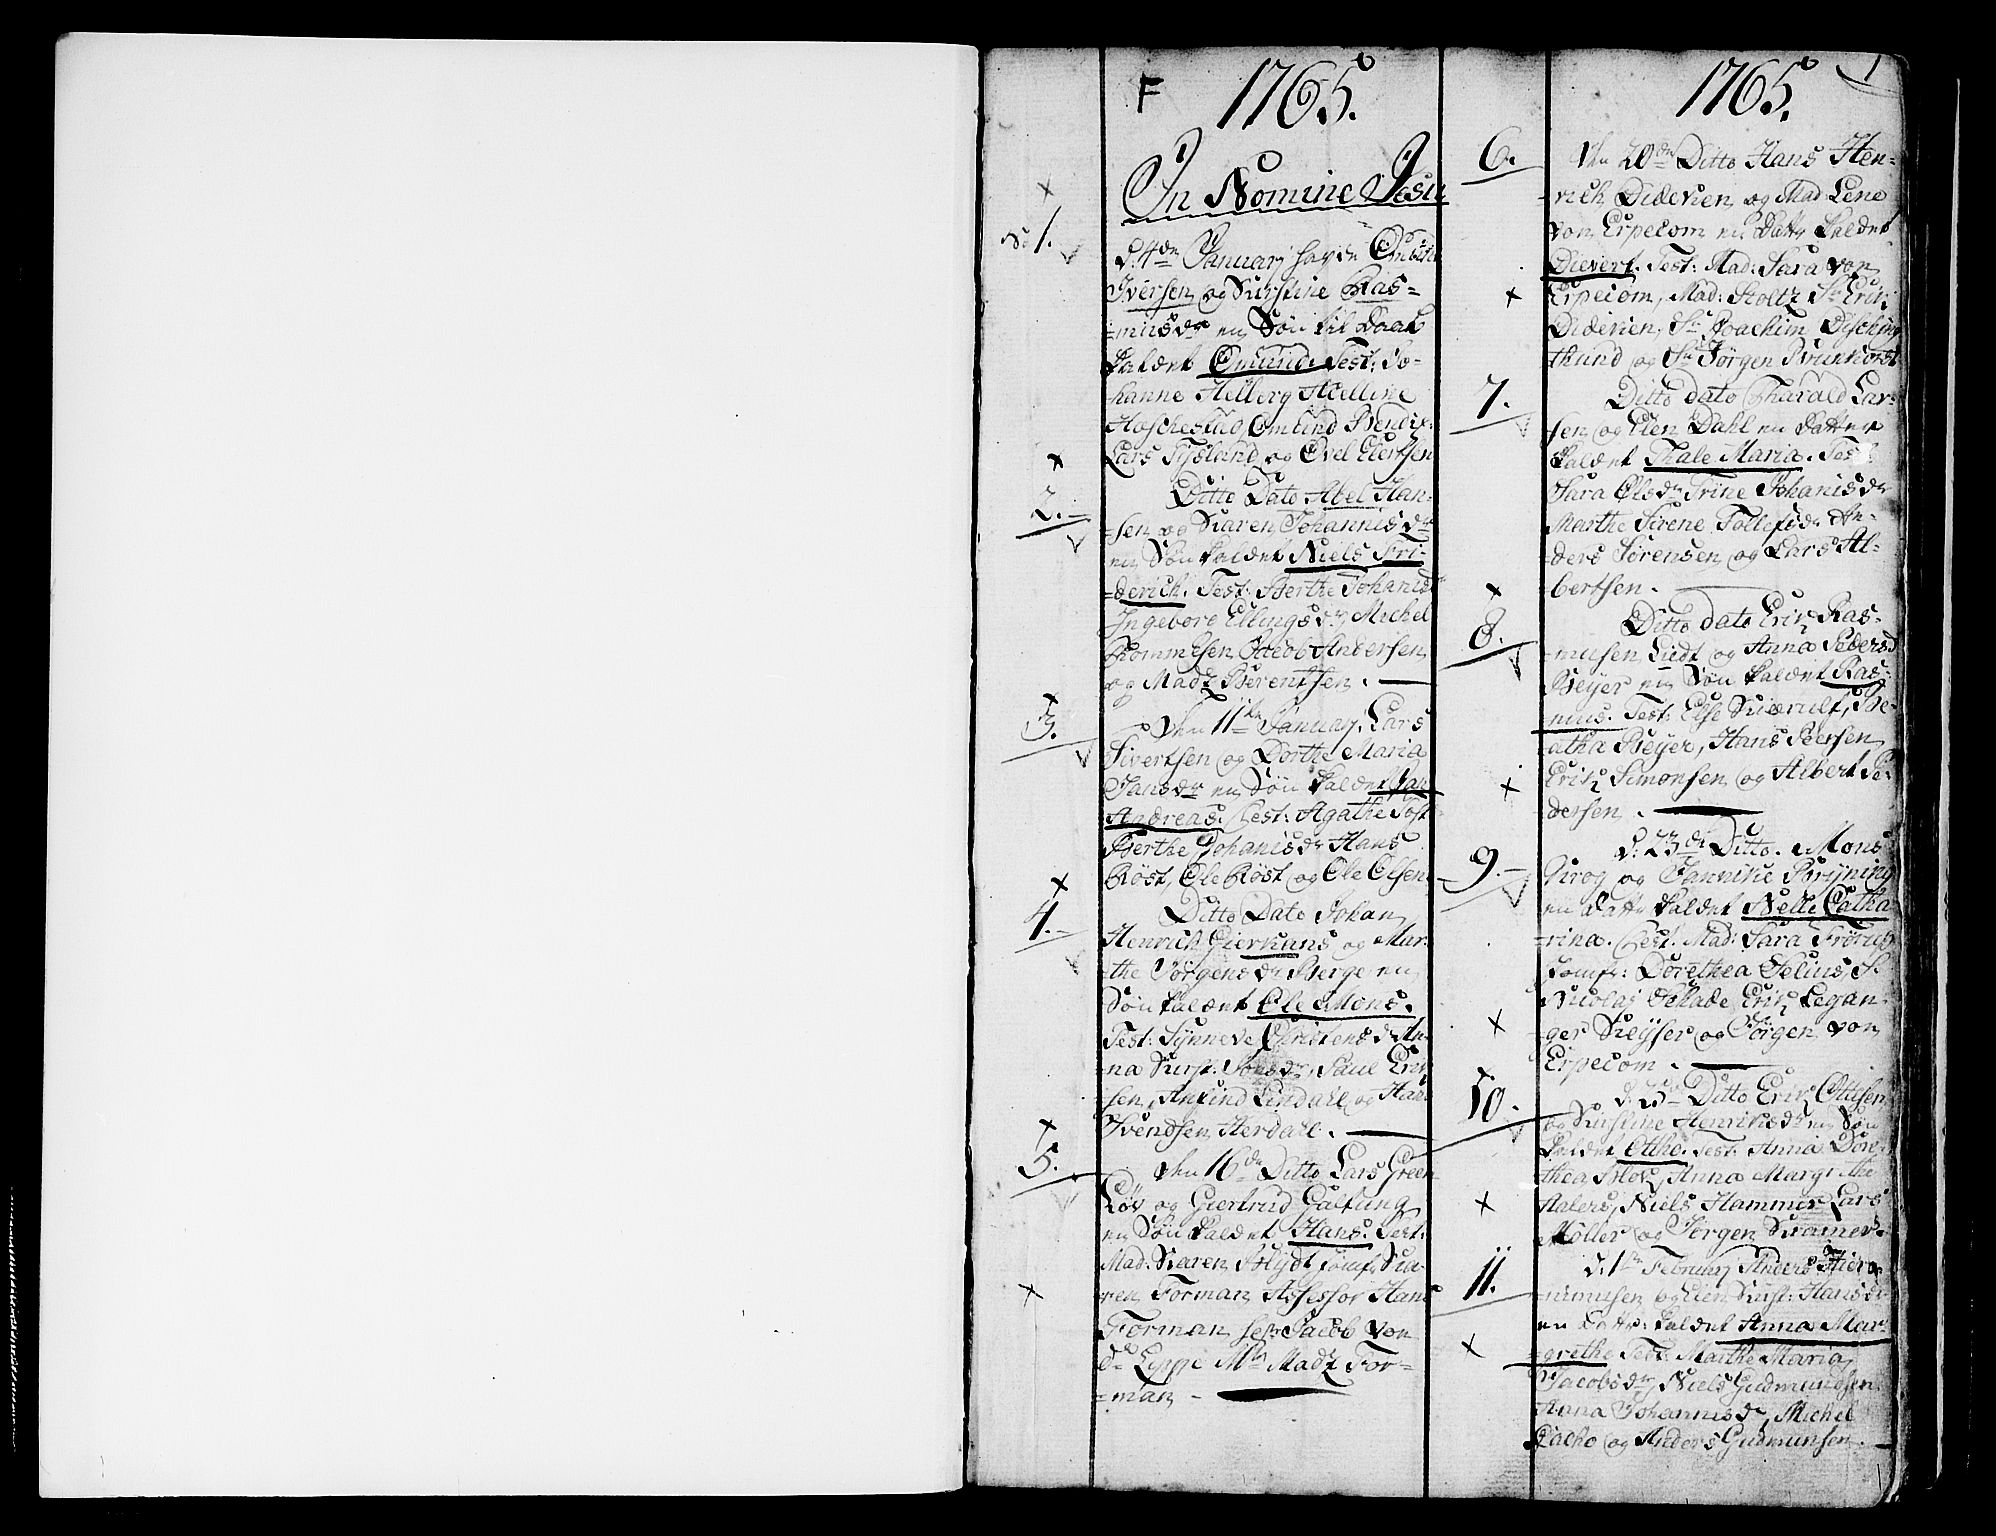 F 1765.
In Nomine Jesu
No 1.
d. 4de Januarj havde Omund
Iversen og Kirstine Ras-
-musdr en Søn til Daab
kaldet Omund. Test: Jo-
hanne Helberg Helline
Omund Bendix:
Lars Tysland og Ovel Elertsen
2.
Ditto Dato Abel Han-
-sen og Karen Johannisdr
en Søn kaldet Niels Fri-
-derich. Test: Berthe Johanisdr
Ingebore Ellingsdr, Michel
Rommesen Jacob Andersen
og Madz Berentsen.
3.
den 11te Januarj Lars
Sivertsen og Dorthe Maria
Jansdr en Søn kaldet Jan
Andreas. Test: Agathe Tost
Berthe Johanisdr Hans
Röst, Ole Röst og Ole Olsen
4.
Ditto Dato Johan
Henrich Gierkans og Mar-
the Jørgensdr Berge en
Søn kaldet Ole Mons.
Test: Synneve Christensdr An-
-na Kirst: Jonsdr, Paul Erik
sen, Ankind Lindahl og Hans
Svendsen Herdall.
5.
den 16de Ditto Lars Green
Löv og Giertrud Galtung
en Søn kaldet Hans. Test:
Mad: Karen Blÿdt Jomf: Ka-
ren Forman Assessor Hans
Forman Jacob von
der Lippe Mr Madz For-
-man
1765. 1
6.
den 20de Ditto Hans Hen-
-rich Didevien og Mad Lene
von Erpecom en Datter kaldet
Dievert. Test: Mad: Sara von
Erpecom, Mad: Stoltz Sr Erik
Didevien, Sr Joachim
thund og Sr Jørgen Brunhorst
7.
Ditto dato Tharald Lar-
sen og Elen Dahl en Datter
kaldet Thale Maria. Test:
Sara Olsdr Trine Johanisdr
Marthe Sirene Tollefsdr An-
-ders Sørensen og Lars Al-
-bertsen.
8.
Ditto dato Erik Ras-
-musen Lied og Anna Pedersd
Beÿer en Søn kaldet Ras-
mus. Test: Else Be-
-atha Beÿer, Hans Peersen
Erik Simonsen og Albert Pe-
dersen.
9.
d: 23de Ditto. Mons
Girog og Jannike Brÿning
en Datt: kaldet Nelle Catha
-rina. Test: Mad: Sara Frørup
Jomfr: Dorethea Jelius, S.
Nicolaj Schade Erik Legan-
-ger Keÿser og Jørgen von
Erpecom.
10.
d: 25de Ditto Erik Ottesen
og Kirstine Henriksdr en Søn
kaldet Otthe. Test: Anna Dore-
thea Anna Margrethe
Aalers, Niels Hammer Lars
Möller og Jørgen Kramer.
11.
d: 1te Februarj Anders Hiero-
nimusen og Elen Kirst: Hansdr
en Datt: kaldet Anna Mar-
grethe Test: Marthe Maria
Jacobsdr, Niels Gudmundsen
Anna Johannisdr, Michel
og Anders Gudmunsen.